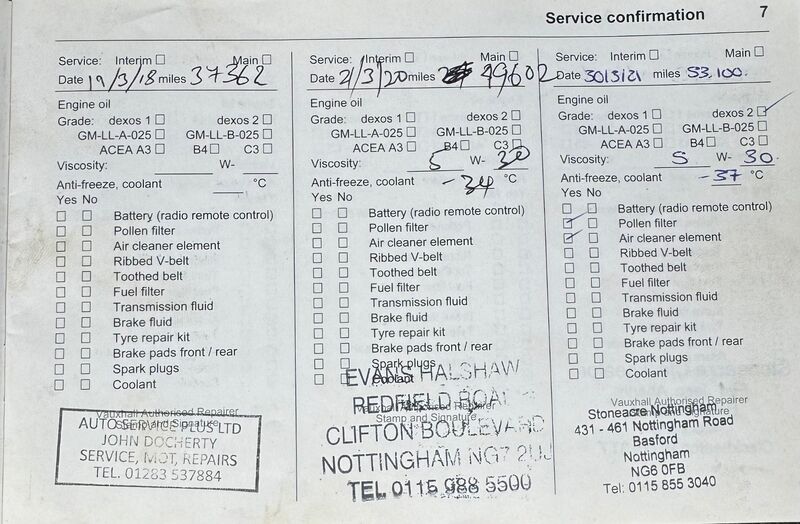 Service confirmation 7
Service: Interim Main
Date 19/3/18 miles 37362
Engine oil
Grade: dexos 1 dexos 2
GM-LL-A-025 GM-LL-B-025
ACEA A3 B4 C3
Viscosity: W-
Anti-freeze, coolant °C
Yes No
Battery (radio remote control)
Pollen filter
Air cleaner element
Ribbed V-belt
Toothed belt
Fuel filter
Transmission fluid
Brake fluid
Tyre repair kit
Brake pads front / rear
Spark plugs
Coolant
Vauxhall Authorised Repairer
Stamp and Signature
AUTO SERVICE PLUS LTD
JOHN DOCHERTY
SERVICE, MOT, REPAIRS
TEL. 01283 537884
Service: Interim Main
Date 21/3/20 miles 49602
Engine oil
Grade: dexos 1 dexos 2
GM-LL-A-025 GM-LL-B-025
ACEA A3 B4 C3
Viscosity: 5 W- 30
Anti-freeze, coolant -34 °C
Yes No
Battery (radio remote control)
Pollen filter
Air cleaner element
Ribbed V-belt
Toothed belt
Fuel filter
Transmission fluid
Brake fluid
Tyre repair kit
Brake pads front / rear
Spark plugs
Coolant
Vauxhall Authorised Repairer
Stamp and Signature
EVANS HALSHAW
REDFIELD ROAD
CLIFTON BOULEVARD
NOTTINGHAM NG7 2UJ
TEL 0115 988 5500
Service: Interim Main
Date 30/3/21 miles 53,100.
Engine oil
Grade: dexos 1 dexos 2
GM-LL-A-025 GM-LL-B-025
ACEA A3 B4 C3
Viscosity: 5 W- 30.
Anti-freeze, coolant -37 °C
Yes No
Battery (radio remote control)
Pollen filter
Air cleaner element
Ribbed V-belt
Toothed belt
Fuel filter
Transmission fluid
Brake fluid
Tyre repair kit
Brake pads front / rear
Spark plugs
Coolant
Vauxhall Authorised Repairer
Stamp and Signature
Stoneacre Nottingham
431 - 461 Nottingham Road
Basford
Nottingham
NG6 0FB
Tel: 0115 855 3040